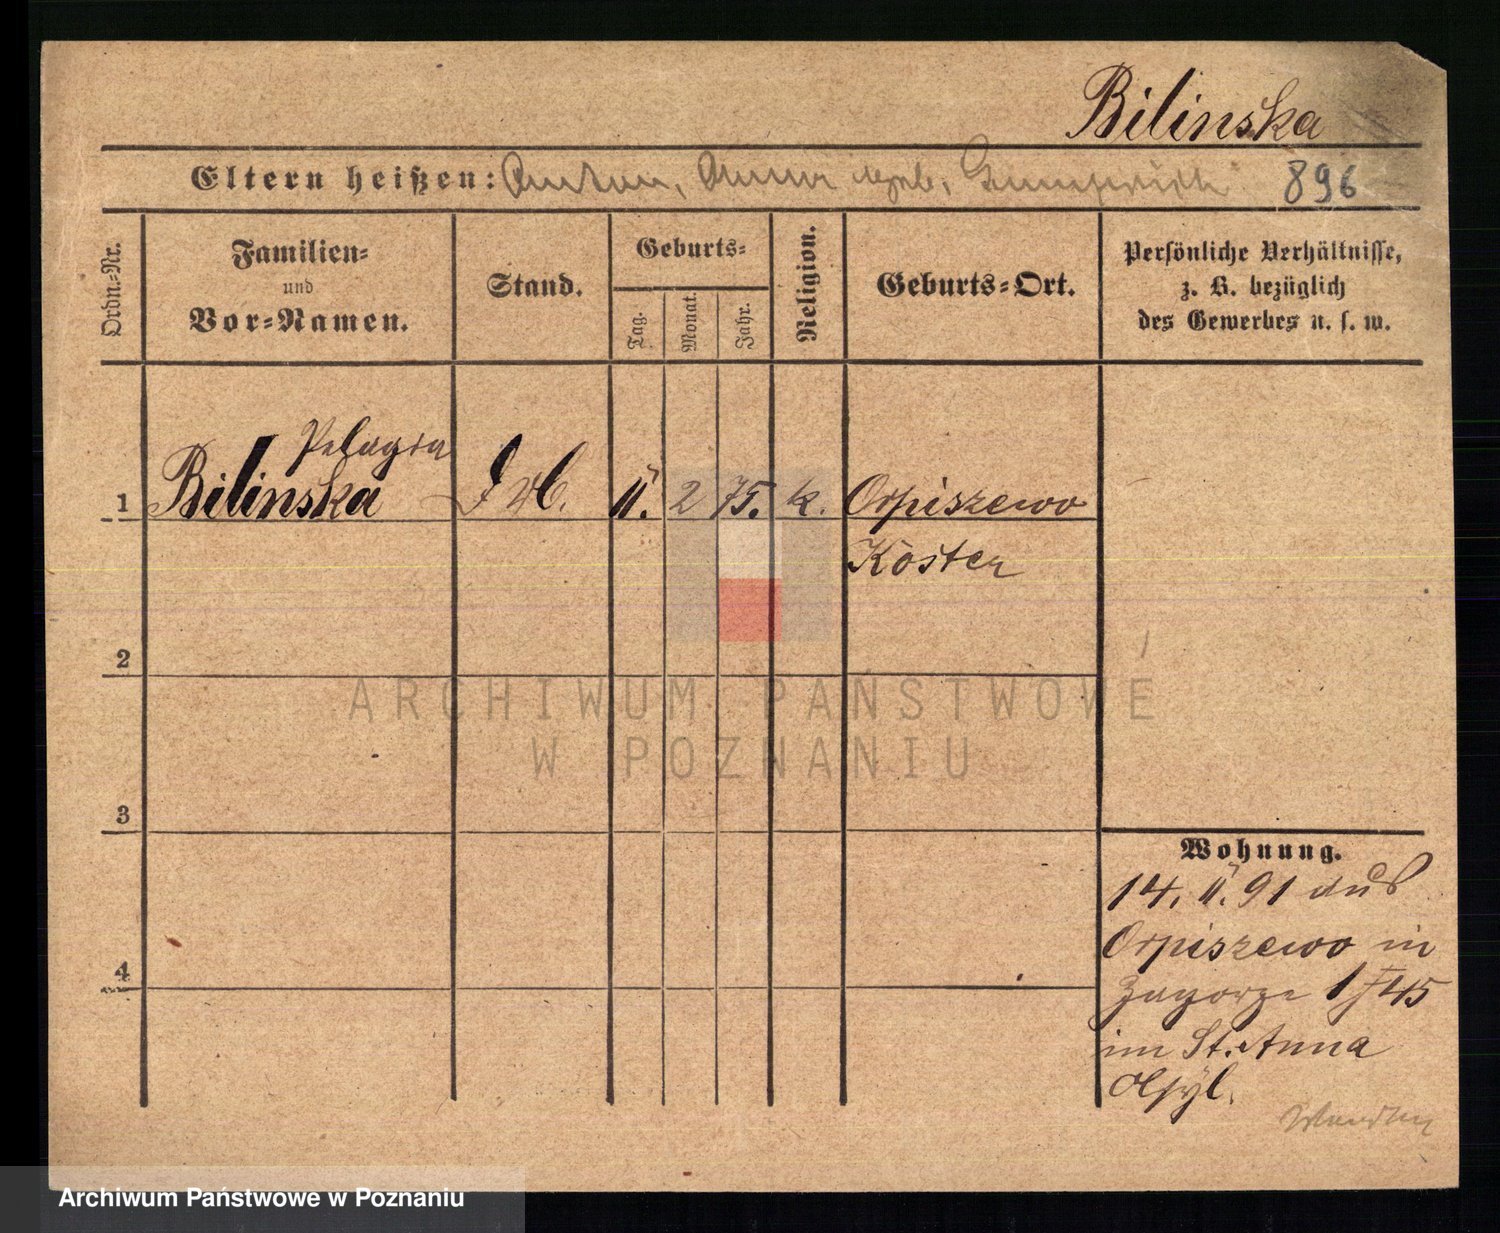 Bilinska
Eltern heißen: Anton, Anna geb. 896
Ordn.-Nr.
Familien-
und
Vor-Namen.
Stand.
Geburts-
Tag.
Monat.
Jahr.
Religion.
Geburts-Ort.
Persönliche Verhältnisse,
z. B. bezüglich
des Gewerbes u. s. w.
Pelagia
1 Bilinska 11. 2 75. k. Orpiszewo
Kosten
2
ARCHIWUM PAŃSTWOWE
W POZNANIU
3
Wohnung.
14. 11. 91 aus
Orpiszewo in
Zagorze 145
im St. Anna
Asyl.
4
Archiwum Państwowe w Poznaniu